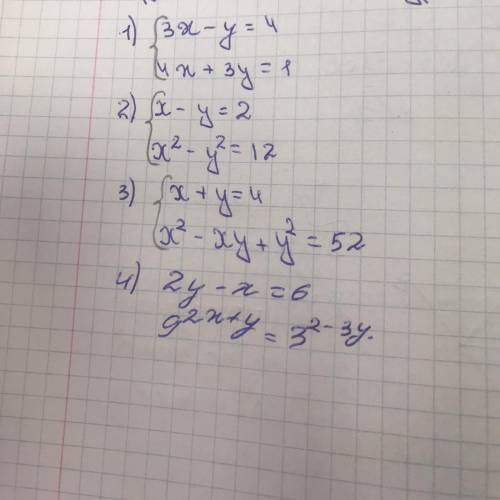 1) { 3x - y = 4
4x + 3y = 1
2) { x - y = 2
x² - y² = 12
3) { x + y = 4
x² - xy + y² = 52
4) 2y - x = 6
9^{2x+y} = 3^{2-3y}.